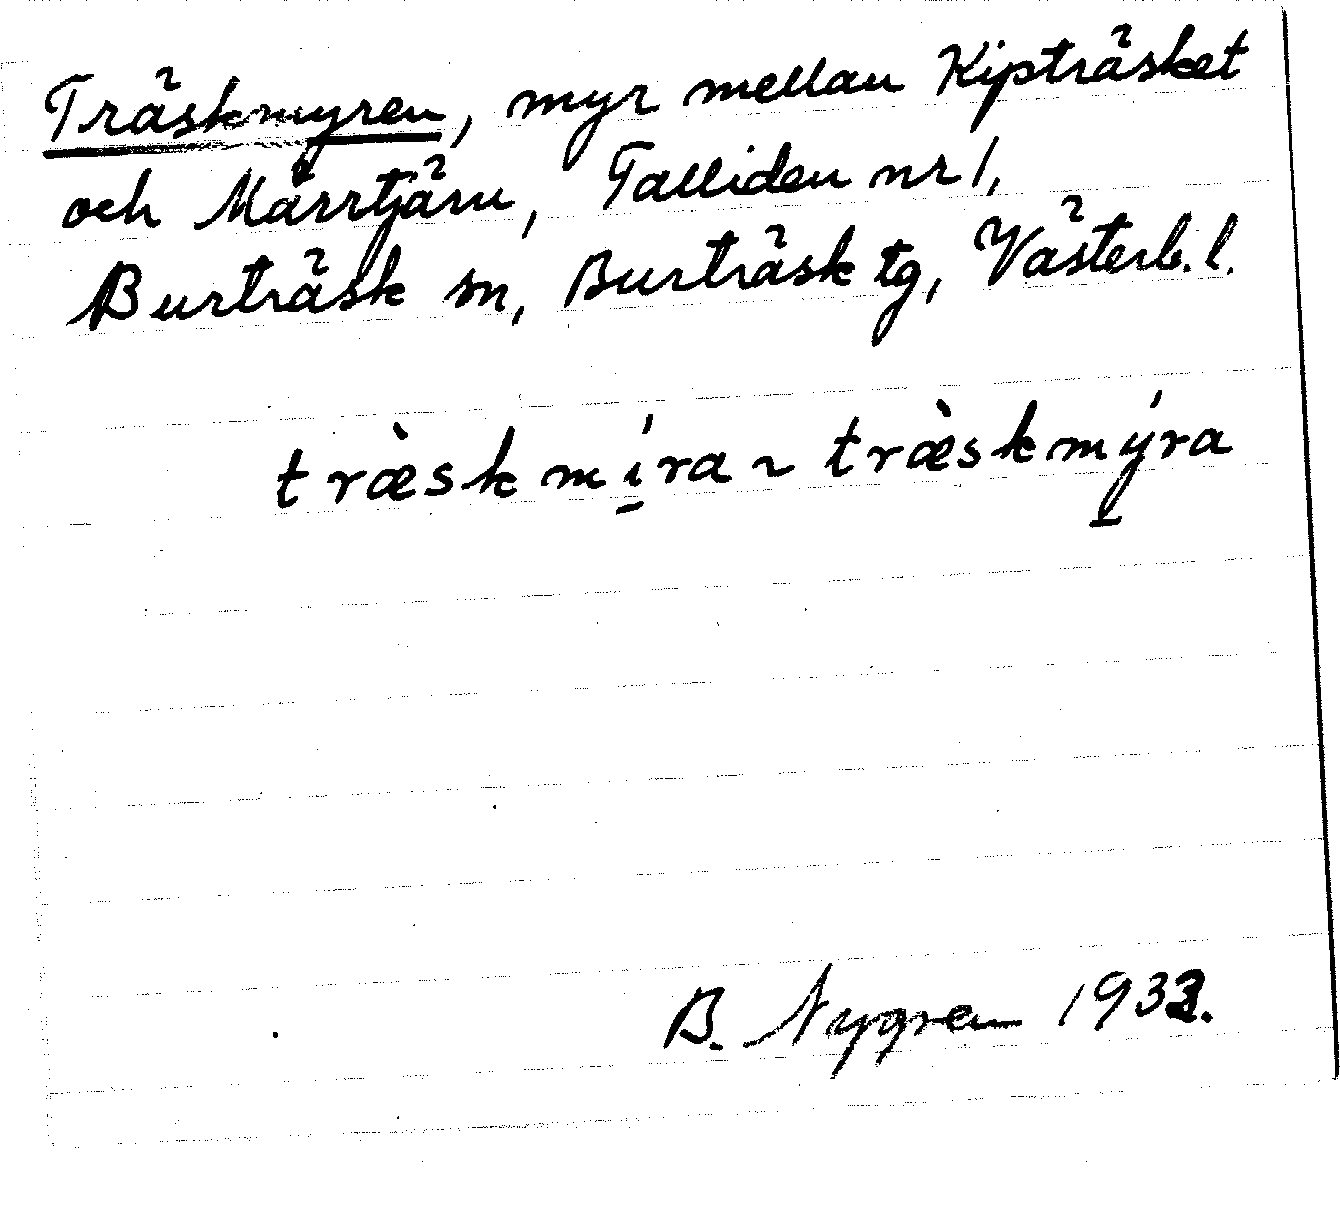 Träskmyren, myr mellan Kipträsket
och Mårrtjärn, Talliden nr 1,
Burträsk sn, Burträsk tg, Västerb. l.
træ̀skmı̱́ra ~ træ̀skmý̱ra
B. Nygren 1933.